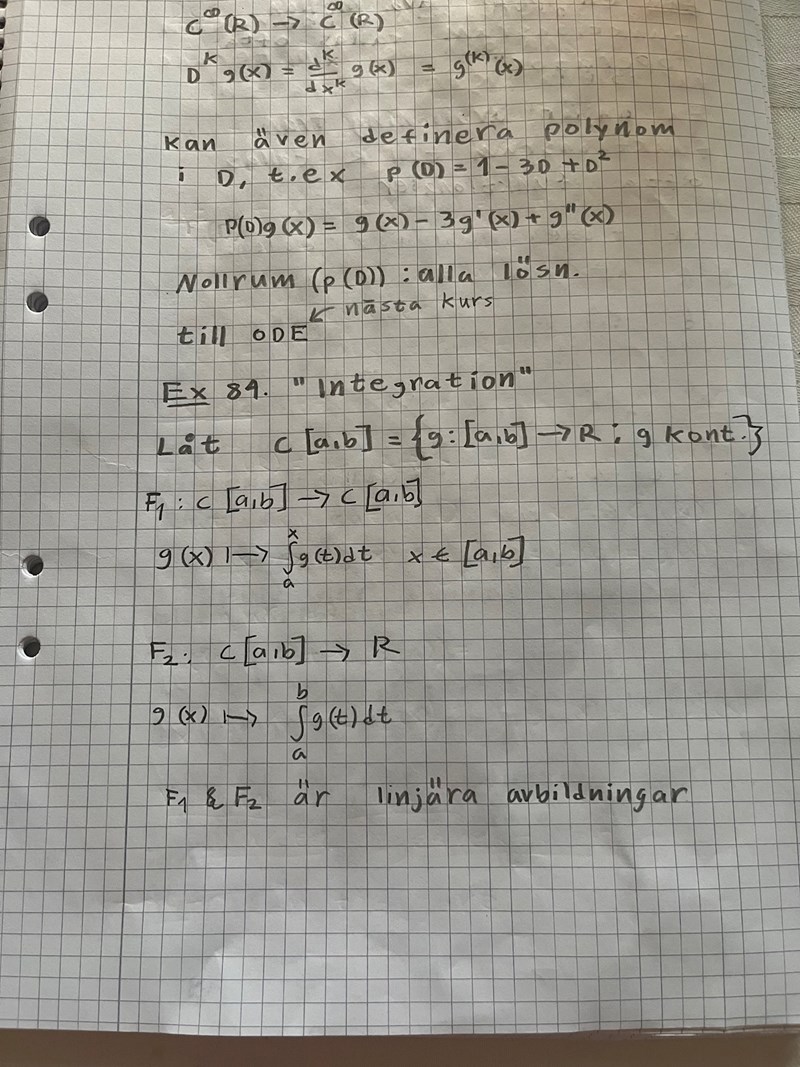 C^∞(R) → C^∞(R)
D^k g(x) = d^k/dx^k g(x) = g^(k)(x)
Kan även definera polynom
i D, t.ex p(D) = 1 - 3D + D²
P(D)g(x) = g(x) - 3g'(x) + g''(x)
Nollrum (p(D)) : alla lösn.
till ODE ↙ nästa kurs
Ex 89. "Integration"
Låt C[a,b] = {g: [a,b] → R : g kont.}
F₁ : C[a,b] → C[a,b]
g(x) ↦ ∫ₐˣ g(t)dt x ∈ [a,b]
F₂: C[a,b] → R
g(x) ↦ ∫ₐᵇ g(t)dt
F₁ & F₂ är linjära avbildningar